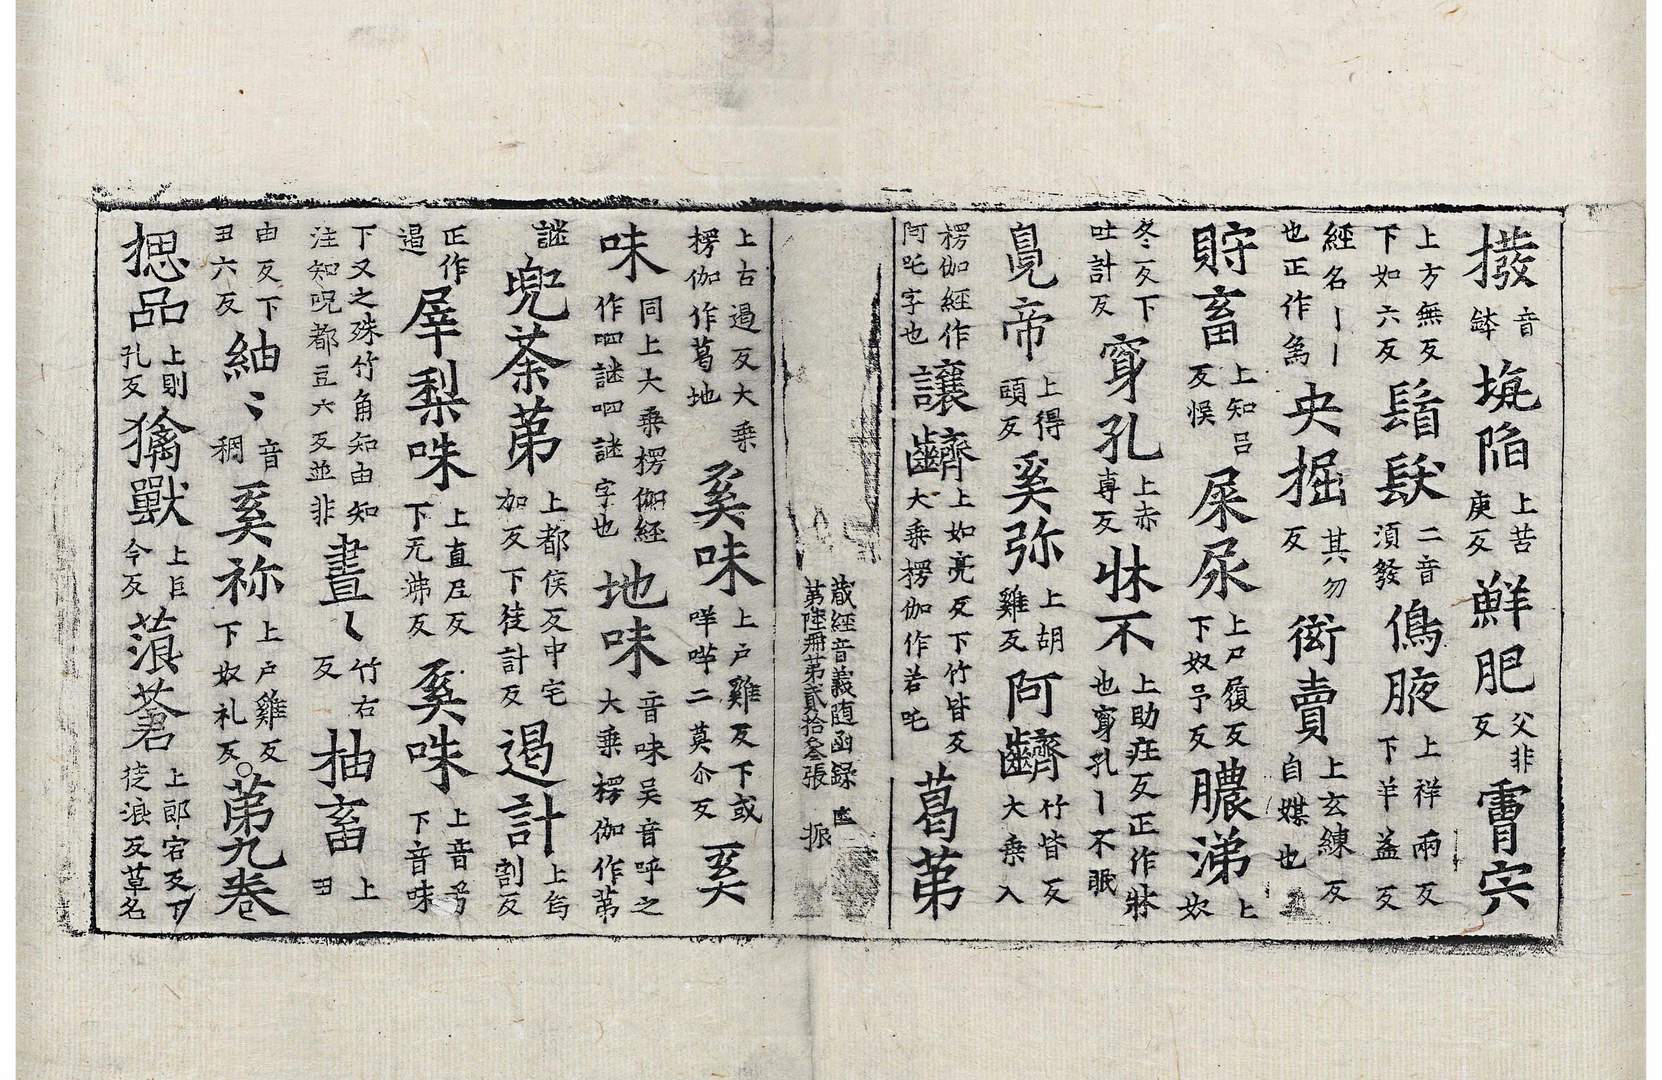 撥音鉢塊陷上苦庚反鮮肥父非反霄宍
上方無反下如六反鬚髮二音湏發鴈腋上祥兩反下羊益反
經名丨丨也正作為央掘其勿反衒賣上玄練反自媒也
貯畜上知呂反悮屎尿上尸履反下奴弔反膿涕上奴
冬反下吐計反穿孔上赤專反牀不上助庄反正作牀也穿孔丨不眠
㝵帝上得頭反奚弥上胡雞反阿齌竹皆反大乗入
楞伽經作阿吒字也讓齌上如亮反下竹皆反大乗楞伽作若吒葛苐
藏經音義随函録
苐陸冊苐貳拾叁張 振
上古遏反大乗楞伽作葛地奚味上戶雞反下或咩哶二莫尒反奚
味同上大乗楞伽經作呬謎呬謎字也地味音味吴音呼之大乗楞伽作苐
謎兜荼苐上都侯反中宅加反下徒計反遏計上烏割反
正作遏犀梨咮上直尼反下无沸反奚咮上音兮下音味
下又之殊竹角知由知注知呪都豆六反並非晝丶竹右反抽畜上丑
由反下丑六反紬〻音稠奚祢上戶雞反下奴礼反○苐九卷
揌品上則孔反擒獸上巨今反蒗䓪上郎宕反下徒浪反草名